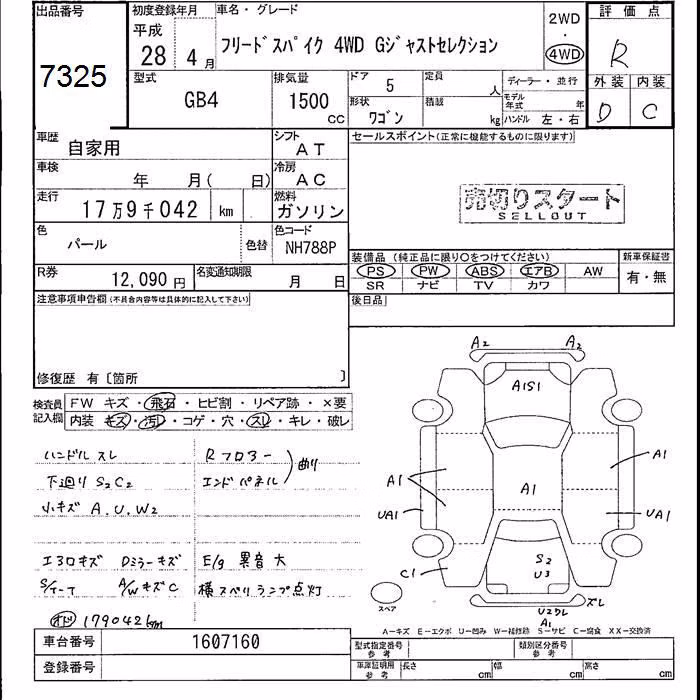 出品番号
7325
初度登録年月
平成
28 4月
車名・グレード
フリードスパイク 4WD Gジャストセレクション
2WD
・
4WD
評価点
R
外装 内装
D C
型式
GB4
排気量
1500
CC
ドア
5
定員
人
形状
ワゴン
積載
kg
ディーラー・並行
モデル年式 年
ハンドル 左・右
車歴
自家用
シフト
AT
車検
年 月( 日)
冷房
AC
走行
17万9千042 km
燃料
ガソリン
色
パール
色替
色コード
NH788P
R券
12,090円
名変通知期限
月 日
セールスポイント(正常に機能するものに限ります)
売切りスタート
SELLOUT
装備品 (純正品に限り〇をつけてください)
PS PW ABS エアB AW
SR ナビ TV カワ
新車保証書
有・無
後日品
注意事項申告欄(不具合内容等は具体的に記入して下さい)
修復歴 有〔箇所 〕
検査員記入欄
FW キズ・飛石・ヒビ割・リペア跡・×要
内装 キズ・汚れ・コゲ・穴・スレ・キレ・破レ
ハンドル スレ
下廻り S2C2
小キズ A.U.W2
Rフロアー
エンドパネル
曲り
エアロキズ Dミラーキズ
S/T-T A/WキズC
E/g 異音大
横スベリランプ点灯
オド 179042km
車台番号
1607160
登録番号
A2 A2
A1S1
A1
A1
A1
UA1
UA1
C1
S2
U3
ズレ
U2ワレ
A1
スペア
A-キズ E-エクボ U-凹み W-補修跡 S-サビ C-腐食 XX-交換済
型式指定番号
参考
類別区分番号
参考
車庫証明用
参考
長さ cm
幅 cm
高さ cm